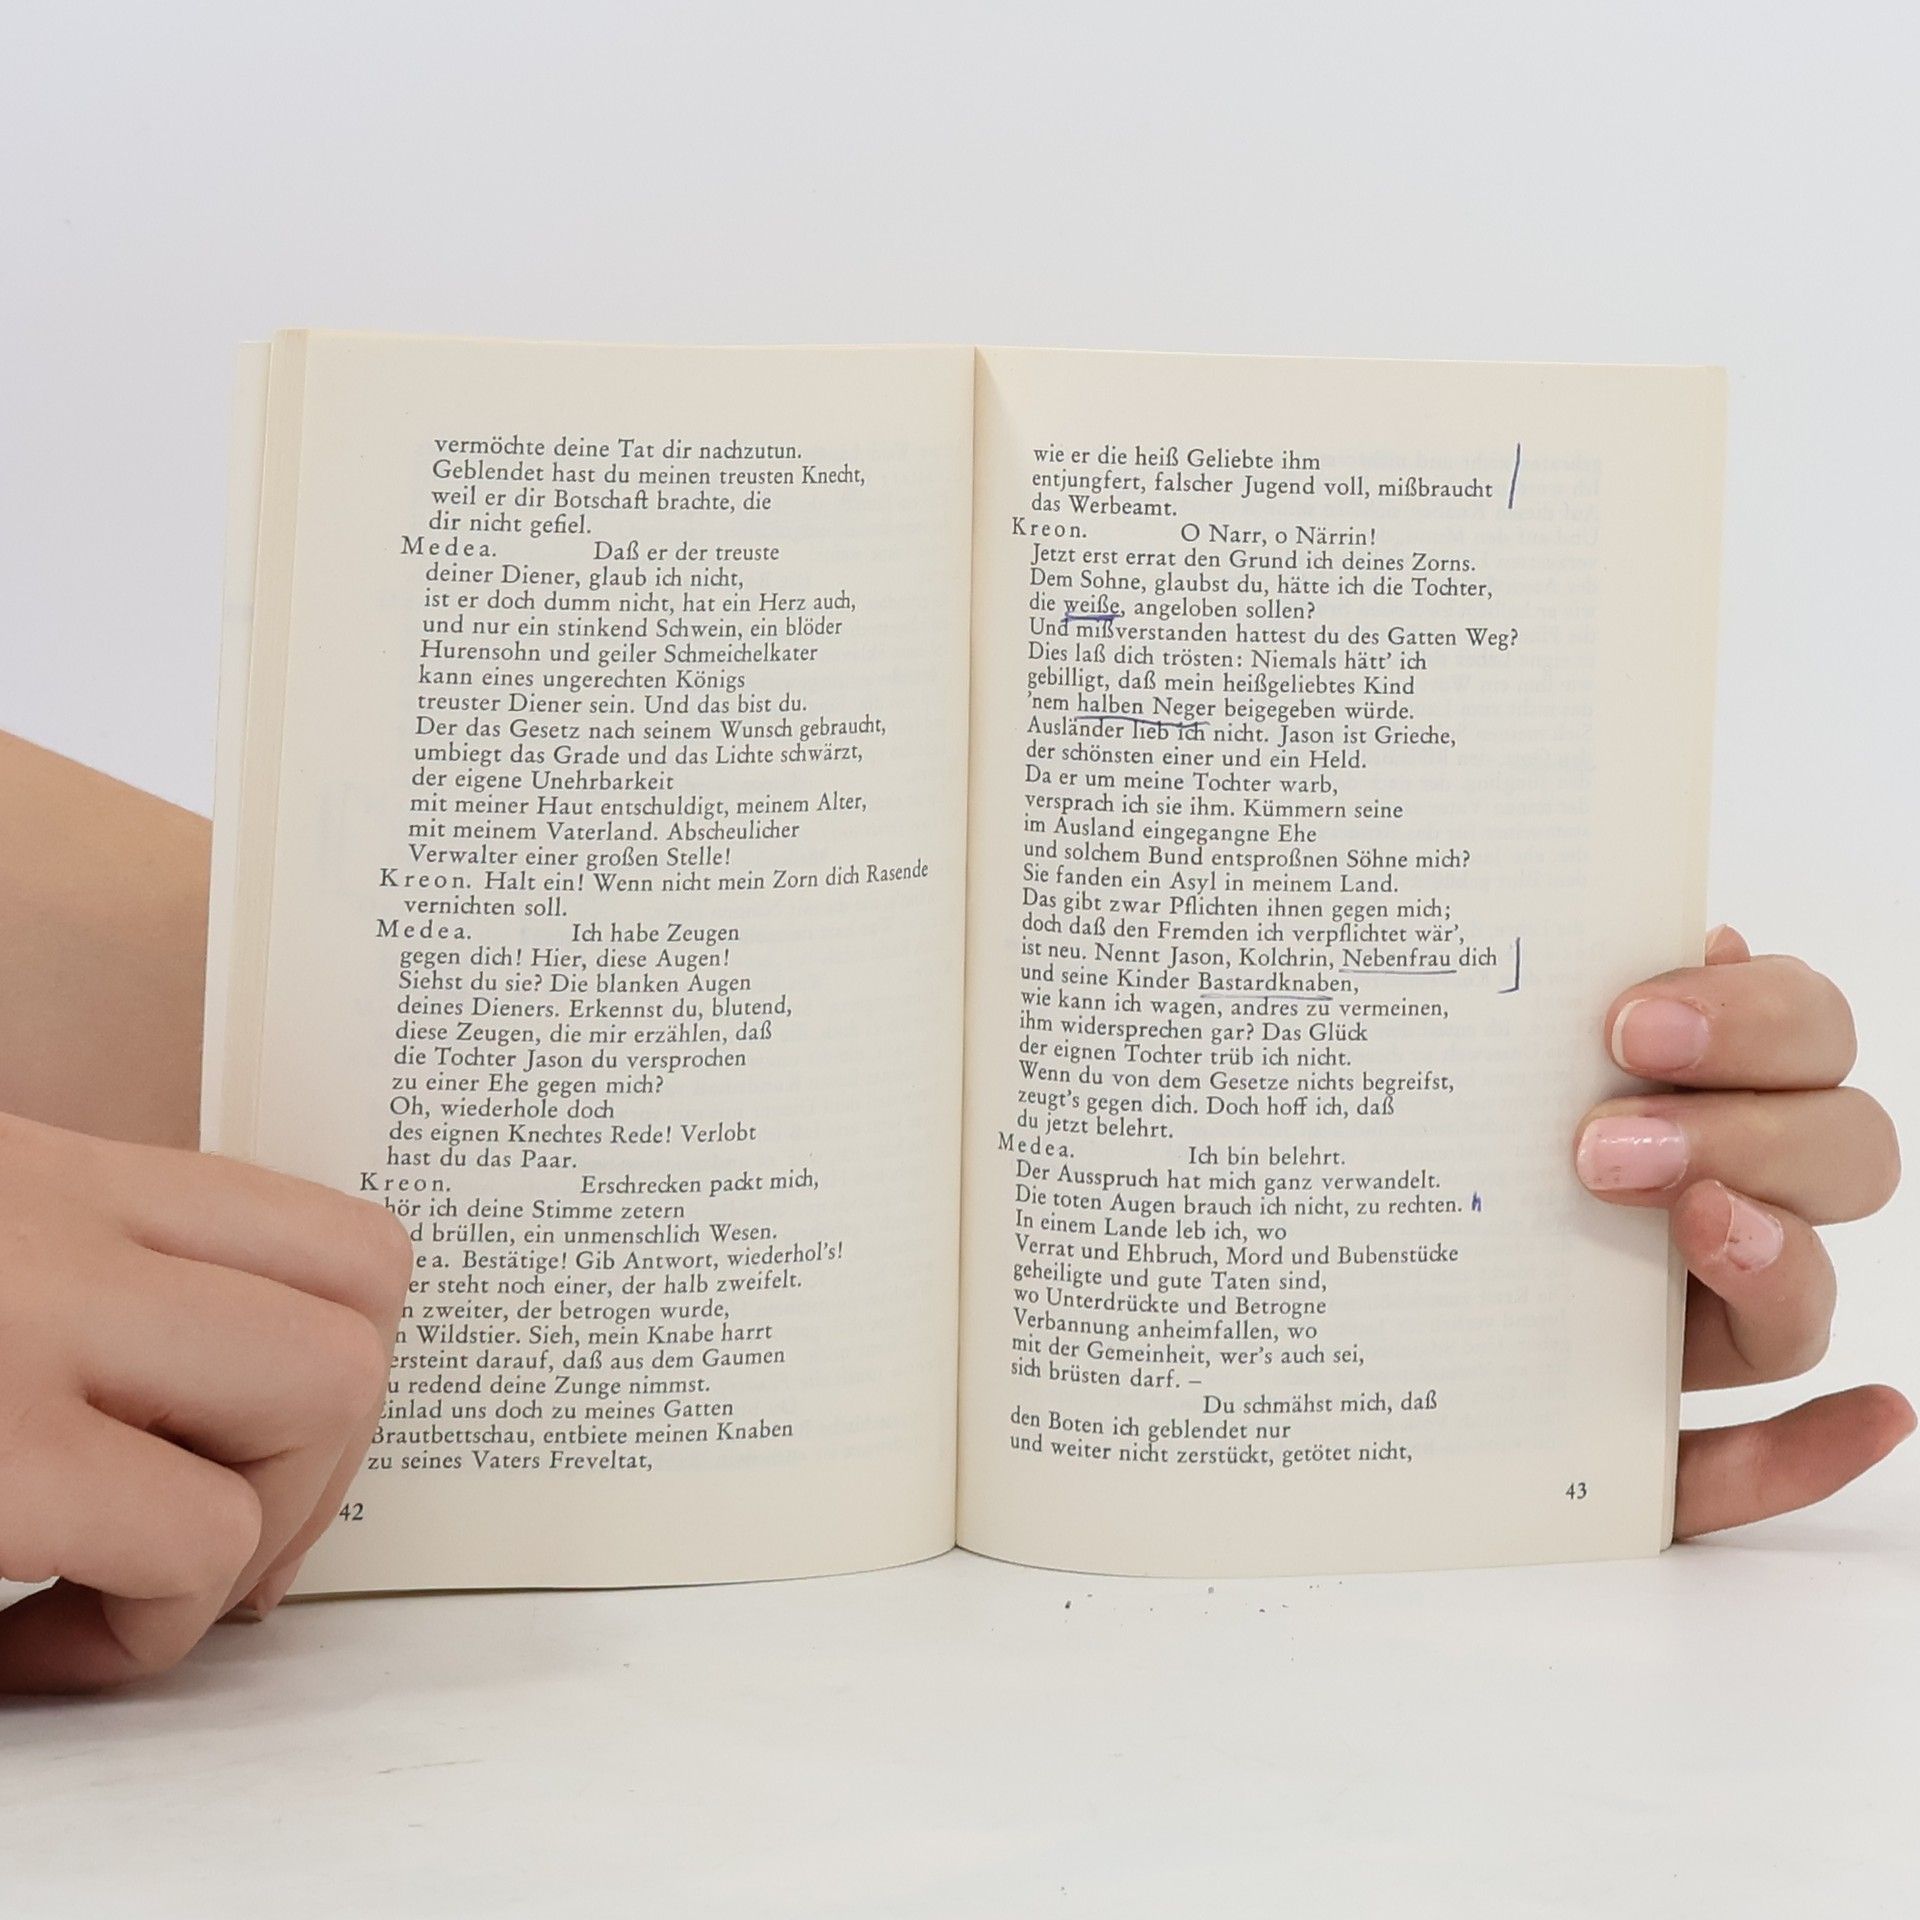 vermöchte deine Tat dir nachzutun.
Geblendet hast du meinen treusten Knecht,
weil er dir Botschaft brachte, die
dir nicht gefiel.
Medea. Daß er der treuste
deiner Diener, glaub ich nicht,
ist er doch dumm nicht, hat ein Herz auch,
und nur ein stinkend Schwein, ein blöder
Hurensohn und geiler Schmeichelkater
kann eines ungerechten Königs
treuster Diener sein. Und das bist du.
Der das Gesetz nach seinem Wunsch gebraucht,
umbiegt das Grade und das Lichte schwärzt,
der eigene Unehrbarkeit
mit meiner Haut entschuldigt, meinem Alter,
mit meinem Vaterland. Abscheulicher
Verwalter einer großen Stelle!
Kreon. Halt ein! Wenn nicht mein Zorn dich Rasende
vernichten soll.
Medea. Ich habe Zeugen
gegen dich! Hier, diese Augen!
Siehst du sie? Die blanken Augen
deines Dieners. Erkennst du, blutend,
diese Zeugen, die mir erzählen, daß
die Tochter Jason du versprochen
zu einer Ehe gegen mich?
Oh, wiederhole doch
des eignen Knechtes Rede! Verlobt
hast du das Paar.
Kreon. Erschrecken packt mich,
hör ich deine Stimme zetern
d brüllen, ein unmenschlich Wesen.
ea. Bestätige! Gib Antwort, wiederhol's!
er steht noch einer, der halb zweifelt.
n zweiter, der betrogen wurde,
n Wildstier. Sieh, mein Knabe harrt
ersteint darauf, daß aus dem Gaumen
u redend deine Zunge nimmst.
Einlad uns doch zu meines Gatten
Brautbettschau, entbiete meinen Knaben
zu seines Vaters Freveltat,
42
wie er die heiß Geliebte ihm
entjungfert, falscher Jugend voll, mißbraucht
das Werbeamt.
Kreon. O Narr, o Närrin!
Jetzt erst errat den Grund ich deines Zorns.
Dem Sohne, glaubst du, hätte ich die Tochter,
die weiße, angeloben sollen?
Und mißverstanden hattest du des Gatten Weg?
Dies laß dich trösten: Niemals hätt' ich
gebilligt, daß mein heißgeliebtes Kind
'nem halben Neger beigegeben würde.
Ausländer lieb ich nicht. Jason ist Grieche,
der schönsten einer und ein Held.
Da er um meine Tochter warb,
versprach ich sie ihm. Kümmern seine
im Ausland eingegangne Ehe
und solchem Bund entsproßnen Söhne mich?
Sie fanden ein Asyl in meinem Land.
Das gibt zwar Pflichten ihnen gegen mich;
doch daß den Fremden ich verpflichtet wär',
ist neu. Nennt Jason, Kolchrin, Nebenfrau dich
und seine Kinder Bastardknaben,
wie kann ich wagen, andres zu vermeinen,
ihm widersprechen gar? Das Glück
der eignen Tochter trüb ich nicht.
Wenn du von dem Gesetze nichts begreifst,
zeugt's gegen dich. Doch hoff ich, daß
du jetzt belehrt.
Medea. Ich bin belehrt.
Der Ausspruch hat mich ganz verwandelt.
Die toten Augen brauch ich nicht, zu rechten.
In einem Lande leb ich, wo
Verrat und Ehbruch, Mord und Bubenstücke
geheiligte und gute Taten sind,
wo Unterdrückte und Betrogne
Verbannung anheimfallen, wo
mit der Gemeinheit, wer's auch sei,
sich brüsten darf. –
Du schmähst mich, daß
den Boten ich geblendet nur
und weiter nicht zerstückt, getötet nicht,
43